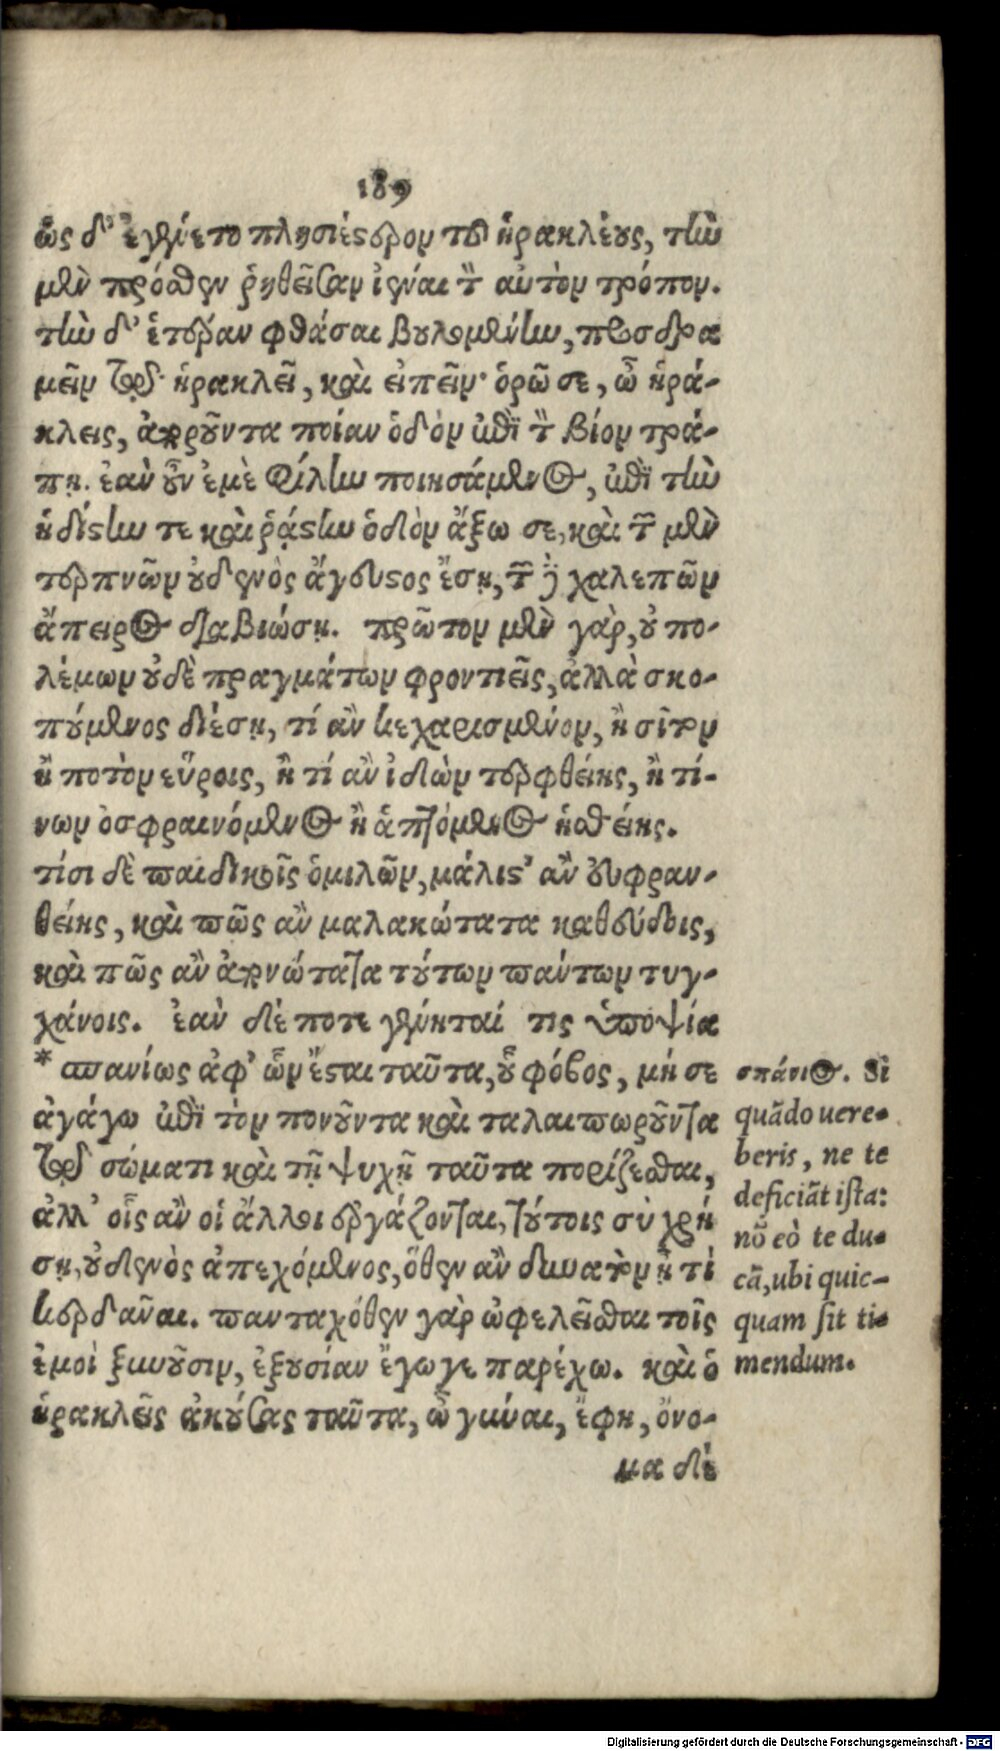 189
ὡς δ' ἐγένετο πλησιέστερον τοῦ ἡρακλέους, τὴν
μὲν πρόσθεν ῥηθεῖσαν ἰέναι τὸν αὐτὸν τρόπον.
τὴν δ' ἑτέραν φθάσαι βουλομένην, προσδρα
μεῖν τῷ ἡρακλεῖ, καὶ εἰπεῖν· ὁρῶ σε, ὦ ἡρά-
κλεις, ἀποροῦντα ποίαν ὁδὸν ἐπὶ τὸν βίον τρά-
πῃ. ἐὰν οὖν ἐμὲ φίλην ποιησάμενος, ἐπὶ τὴν
ἡδίστην τε καὶ ῥᾴστην ὁδὸν ἄξω σε, καὶ τῶν μὲν
τερπνῶν οὐδενὸς ἄγευστος ἔσῃ, τῶν δὲ χαλεπῶν
ἄπειρος διαβιώσῃ. πρῶτον μὲν γὰρ, οὐ πο-
λέμων οὐδὲ πραγμάτων φροντιεῖς, ἀλλὰ σκο-
πούμενος διέσῃ, τί ἂν κεχαρισμένον, ἢ σῖτον
ἢ ποτὸν εὕροις, ἢ τί ἂν ἰδὼν τερφθείης, ἢ τί-
νων ὀσφραινόμενος ἢ ἁπτόμενος ἡσθείης.
τίσι δὲ παιδικοῖς ὁμιλῶν, μάλιστ' ἂν εὐφραν-
θείης, καὶ πῶς ἂν μαλακώτατα καθεύδοις,
καὶ πῶς ἂν ἀπονώτατα τούτων πάντων τυγ-
χάνοις. ἐὰν δέ ποτε γένηταί τις ὑποψία
* σπανίως ἀφ' ὧν ἔσται ταῦτα, οὐ φόβος, μή σε
ἀγάγω ἐπὶ τὸν πονοῦντα καὶ ταλαιπωροῦντα
τῷ σώματι καὶ τῇ ψυχῇ ταῦτα πορίζεσθαι,
ἀλλ' οἷς ἂν οἱ ἄλλοι ἐργάζονται, τούτοις σὺ χρή
σῃ, οὐδενὸς ἀπεχόμενος, ὅθεν ἂν δυνατὸν ᾖ τὶ
κερδᾶναι. πανταχόθεν γὰρ ὠφελεῖσθαι τοῖς
ἐμοὶ ξυνοῦσιν, ἐξουσίαν ἔγωγε παρέχω. καὶ ὁ
ἡρακλῆς ἀκούσας ταῦτα, ὦ γύναι, ἔφη, ὄνο-
μα δέ
σπάνιος. Si
quãdo uere-
beris, ne te
deficiãt ista:
nõ eò te du-
cã, ubi quic-
quam sit ti-
mendum.
Digitalisierung gefördert durch die Deutsche Forschungsgemeinschaft - DFG